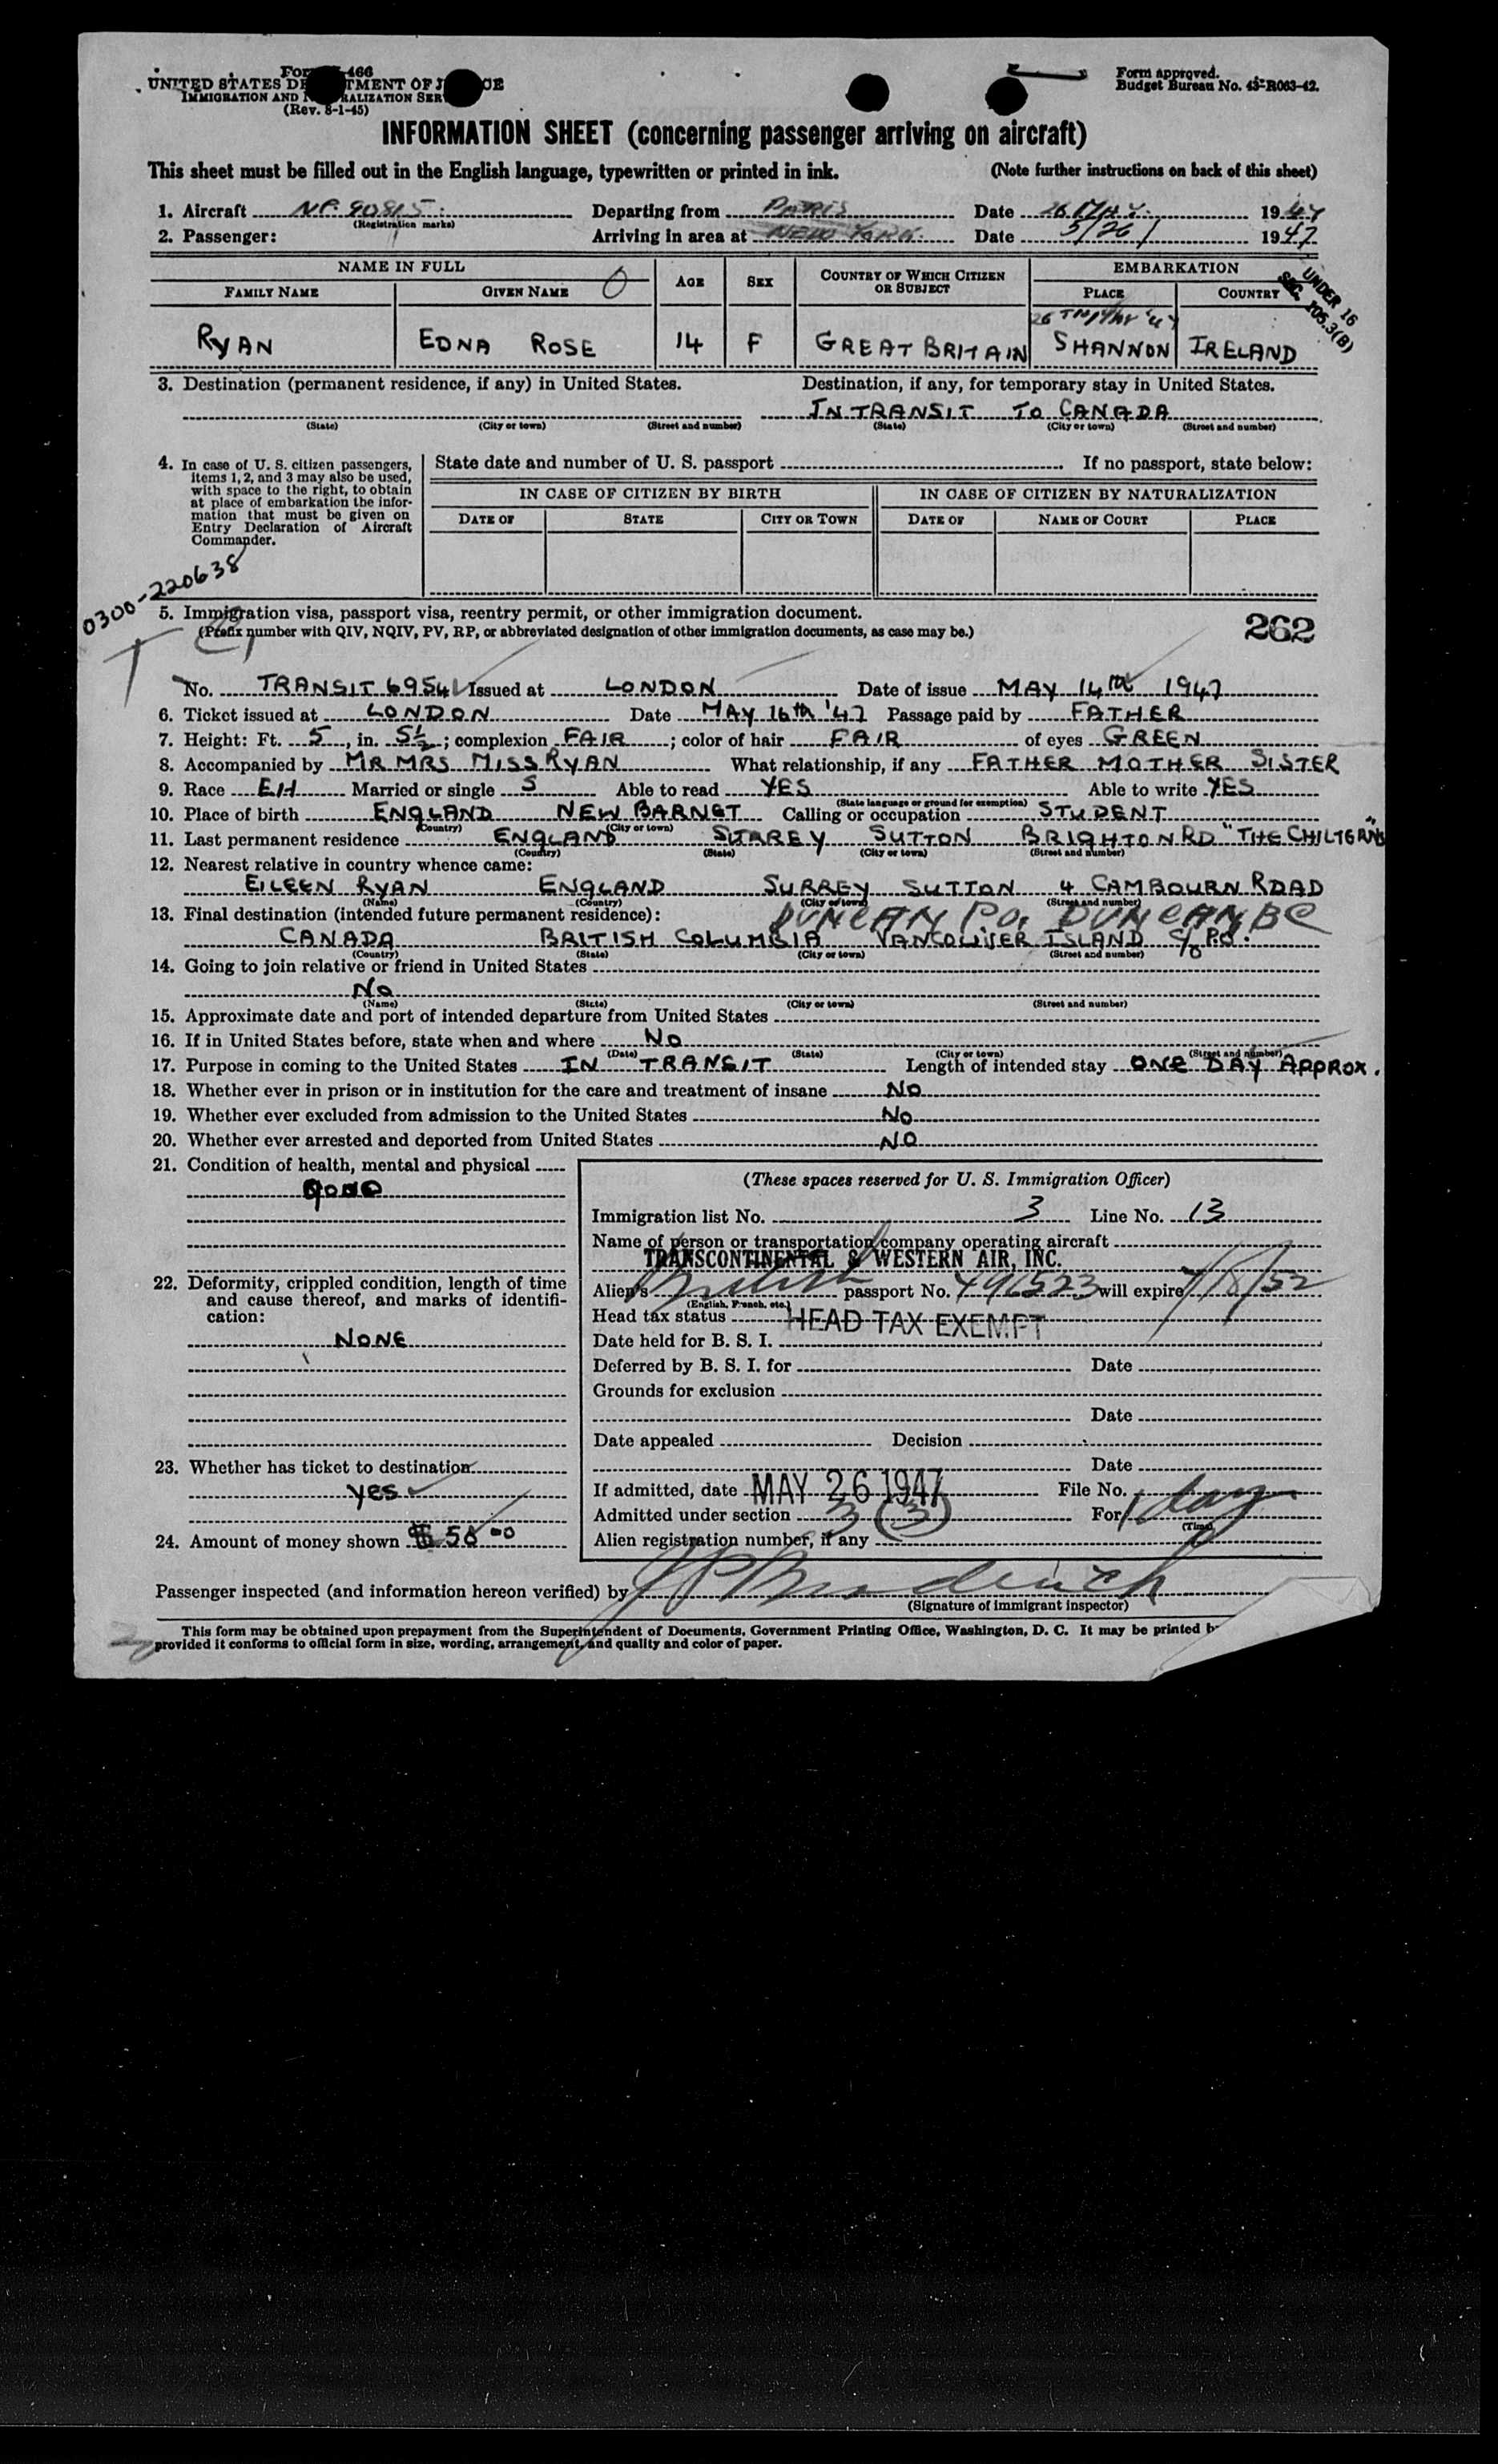 Form 466
UNITED STATES DEPARTMENT OF JUSTICE
IMMIGRATION AND NATURALIZATION SERVICE
(Rev. 8-1-45)
Form approved.
Budget Bureau No. 43-R063-42.
INFORMATION SHEET (concerning passenger arriving on aircraft)
This sheet must be filled out in the English language, typewritten or printed in ink. (Note further instructions on back of this sheet)
1. Aircraft NC 90815 Departing from PARIS Date 26 MAY 1947
(Registration marks)
2. Passenger: Arriving in area at NEW YORK Date 5/26/ 1947
NAME IN FULL AGE SEX COUNTRY OF WHICH CITIZEN OR SUBJECT EMBARKATION
FAMILY NAME GIVEN NAME PLACE COUNTRY
UNDER 16
SEC. 105.3(B)
26TH MAY '47
RYAN EDNA ROSE 14 F GREAT BRITAIN SHANNON IRELAND
3. Destination (permanent residence, if any) in United States. Destination, if any, for temporary stay in United States.
IN TRANSIT TO CANADA
(State) (City or town) (Street and number) (State) (City or town) (Street and number)
4. In case of U. S. citizen passengers, items 1, 2, and 3 may also be used, with space to the right, to obtain at place of embarkation the information that must be given on Entry Declaration of Aircraft Commander.
State date and number of U. S. passport If no passport, state below:
IN CASE OF CITIZEN BY BIRTH IN CASE OF CITIZEN BY NATURALIZATION
DATE OF STATE CITY OR TOWN DATE OF NAME OF COURT PLACE
0300-220638
T
5. Immigration visa, passport visa, reentry permit, or other immigration document.
(Prefix number with QIV, NQIV, PV, RP, or abbreviated designation of other immigration documents, as case may be.)
262
No. TRANSIT 6954 Issued at LONDON Date of issue MAY 14th 1947
6. Ticket issued at LONDON Date MAY 16th '47 Passage paid by FATHER
7. Height: Ft. 5, in. 5½; complexion FAIR; color of hair FAIR of eyes GREEN
8. Accompanied by MR MRS MISS RYAN What relationship, if any FATHER MOTHER SISTER
9. Race EH Married or single S Able to read YES Able to write YES
(State language or ground for exemption)
10. Place of birth ENGLAND NEW BARNET Calling or occupation STUDENT
(Country) (City or town)
11. Last permanent residence ENGLAND SURREY SUTTON BRIGHTON RD "THE CHILTERNS"
(Country) (State) (City or town) (Street and number)
12. Nearest relative in country whence came:
EILEEN RYAN ENGLAND SURREY SUTTON 4 CAMBOURN ROAD
(Name) (Country) (City or town) (Street and number)
13. Final destination (intended future permanent residence): DUNCAN P.O. DUNCAN, BC
CANADA BRITISH COLUMBIA VANCOUVER ISLAND c/o P.O.
(Country) (State) (City or town) (Street and number)
14. Going to join relative or friend in United States
No
(Name) (State) (City or town) (Street and number)
15. Approximate date and port of intended departure from United States
16. If in United States before, state when and where No
(Date) (State) (City or town) (Street and number)
17. Purpose in coming to the United States IN TRANSIT Length of intended stay ONE DAY APPROX.
18. Whether ever in prison or in institution for the care and treatment of insane NO
19. Whether ever excluded from admission to the United States NO
20. Whether ever arrested and deported from United States NO
21. Condition of health, mental and physical
GOOD
22. Deformity, crippled condition, length of time and cause thereof, and marks of identification:
NONE
23. Whether has ticket to destination
yes
24. Amount of money shown $ 50 00
(These spaces reserved for U. S. Immigration Officer)
Immigration list No. 3 Line No. 13
Name of person or transportation company operating aircraft
TRANSCONTINENTAL & WESTERN AIR, INC.
Alien's British passport No. 491523 will expire 4/18/52
(English, French, etc.)
Head tax status HEAD TAX EXEMPT
Date held for B. S. I.
Deferred by B. S. I. for Date
Grounds for exclusion
Date
Date appealed Decision
Date
If admitted, date MAY 26 1947 File No.
Admitted under section 3 (3) For 1 day
(Time)
Alien registration number, if any
Passenger inspected (and information hereon verified) by
(Signature of immigrant inspector)
This form may be obtained upon prepayment from the Superintendent of Documents, Government Printing Office, Washington, D. C. It may be printed
provided it conforms to official form in size, wording, arrangement, and quality and color of paper.